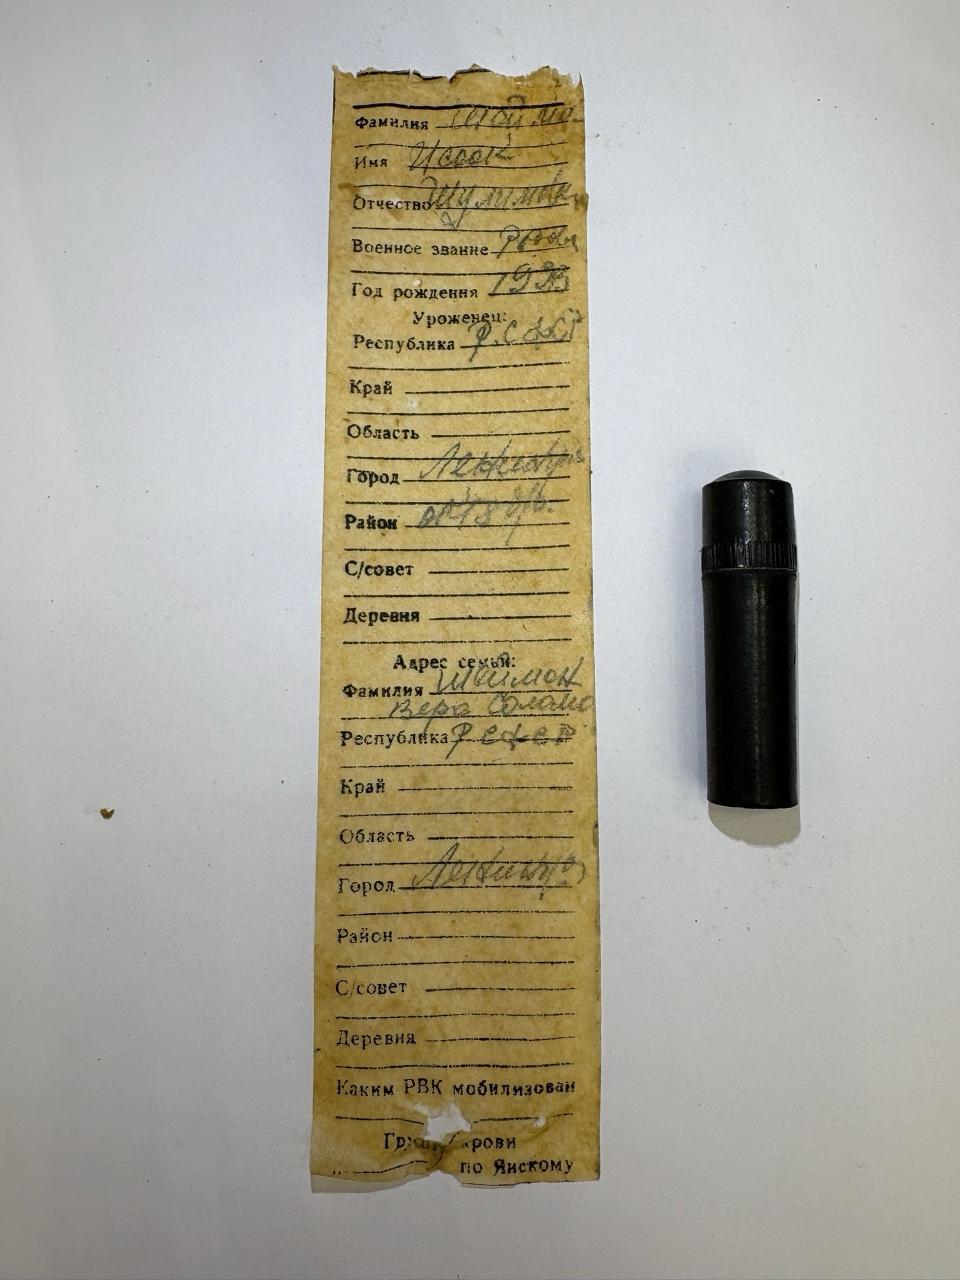 Фамилия
Имя Исаак
Отчество
Военное звание
Год рождения
Уроженец:
Республика Р.С.Ф.С.Р
Край
Область
Город Ленинград
Район
С/совет
Деревня
Адрес семьи:
Фамилия Шеймон
Вера Соломо
Республика РСФСР
Край
Область
Город Ленинград
Район
С/совет
Деревня
Каким РВК мобилизован
Группа крови
по Янскому